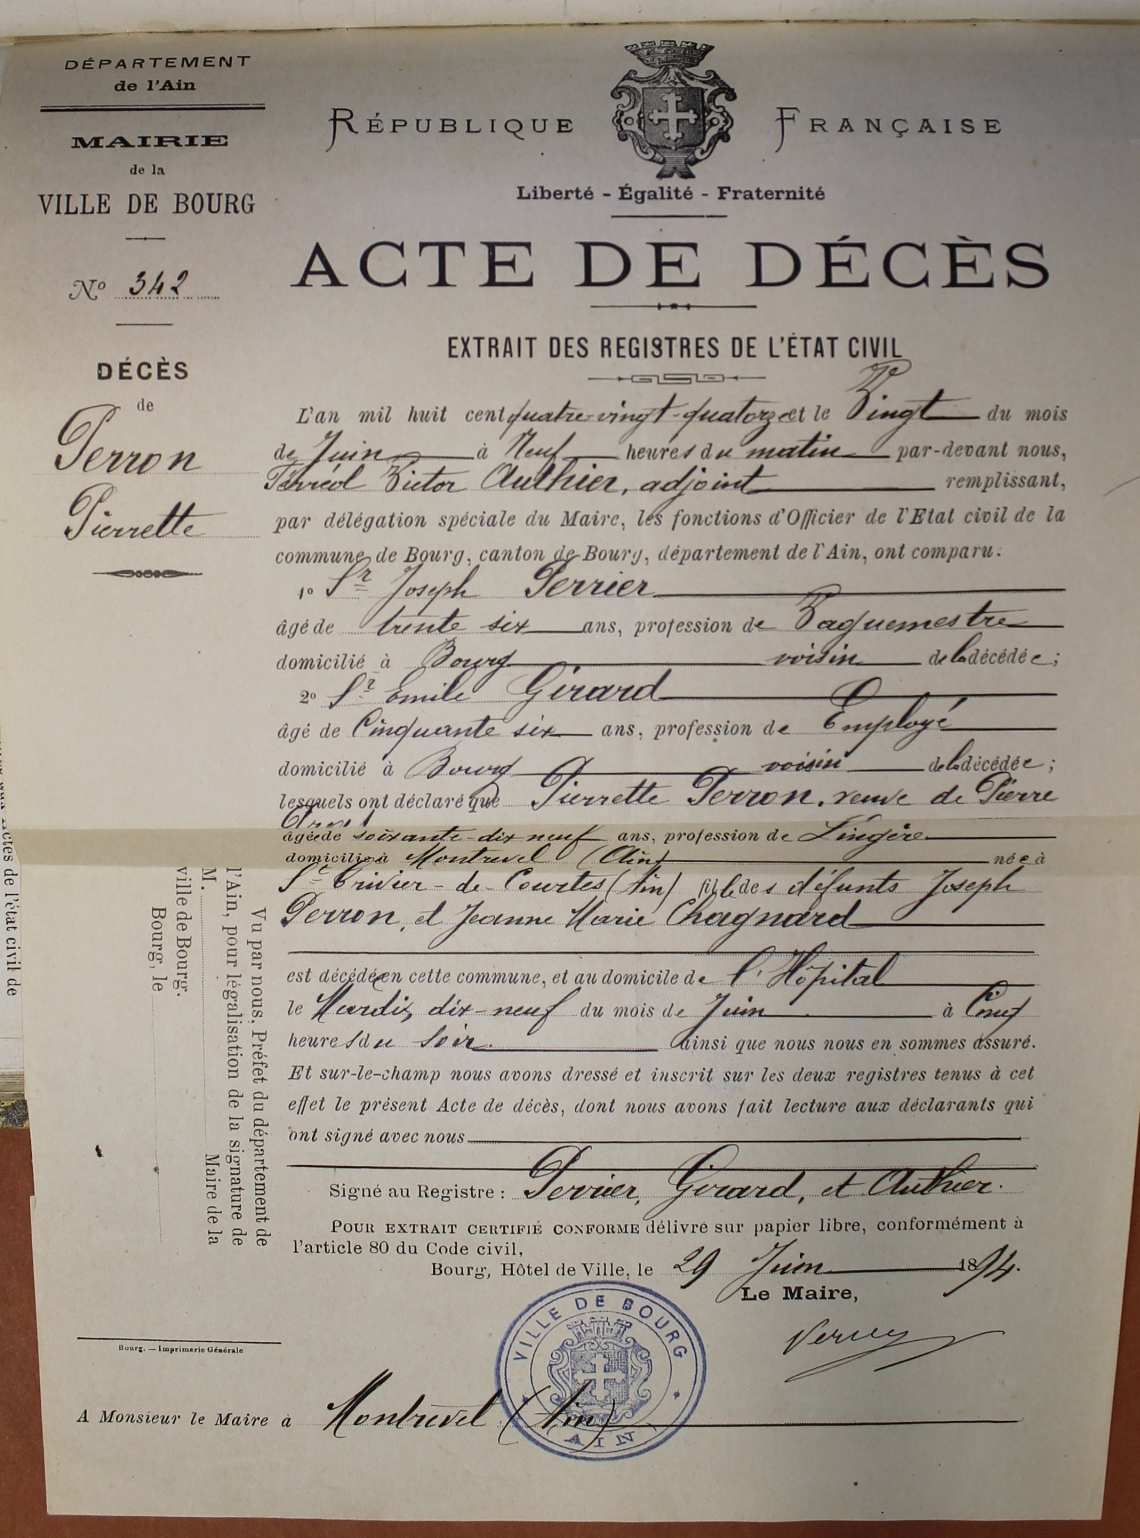 DÉPARTEMENT
de l'Ain
MAIRIE
de la
VILLE DE BOURG
No 342
DÉCÈS
de
Perron
Pierrette
RÉPUBLIQUE FRANÇAISE
Liberté - Égalité - Fraternité
ACTE DE DÉCÈS
EXTRAIT DES REGISTRES DE L'ÉTAT CIVIL
L'an mil huit cent quatre-vingt-quatorze et le Vingt du mois
de Juin à Neuf heures du matin par-devant nous,
Ferréol Victor Authier, adjoint remplissant,
par délégation spéciale du Maire, les fonctions d'Officier de l'Etat civil de la
commune de Bourg, canton de Bourg, département de l'Ain, ont comparu:
1o Sr Joseph Perrier
âgé de trente six ans, profession de Vaguemestre
domicilié à Bourg voisin de la décédée;
2o Sr Emile Girard
âgé de Cinquante six ans, profession de Employé
domicilié à Bourg voisin de la décédée;
lesquels ont déclaré que Pierrette Perron, veuve de Pierre
âgée de soixante-dix neuf ans, profession de Lingère
domiciliée à Montrevel (Ain) née à
St Trivier-de-Courtes (Ain) fille des défunts Joseph
Perron, et Jeanne Marie Chagnard
est décédée en cette commune, et au domicile de l'Hôpital
le Mardi, dix-neuf du mois de Juin à Cinq
heures du soir. ainsi que nous nous en sommes assuré.
Et sur-le-champ nous avons dressé et inscrit sur les deux registres tenus à cet
effet le présent Acte de décès, dont nous avons fait lecture aux déclarants qui
ont signé avec nous
Signé au Registre: Perrier, Girard, et Authier.
POUR EXTRAIT CERTIFIÉ CONFORME délivré sur papier libre, conformément à
l'article 80 du Code civil,
Bourg, Hôtel de Ville, le 29 Juin 1894.
Le Maire,
VILLE DE BOURG
AIN
Vu par nous, Préfet du département de
l'Ain, pour légalisation de la signature de
M. Maire de la
ville de Bourg.
Bourg, le
Bourg. — Imprimerie Générale
A Monsieur le Maire à Montrevel (Ain)
Actes de l'état civil de